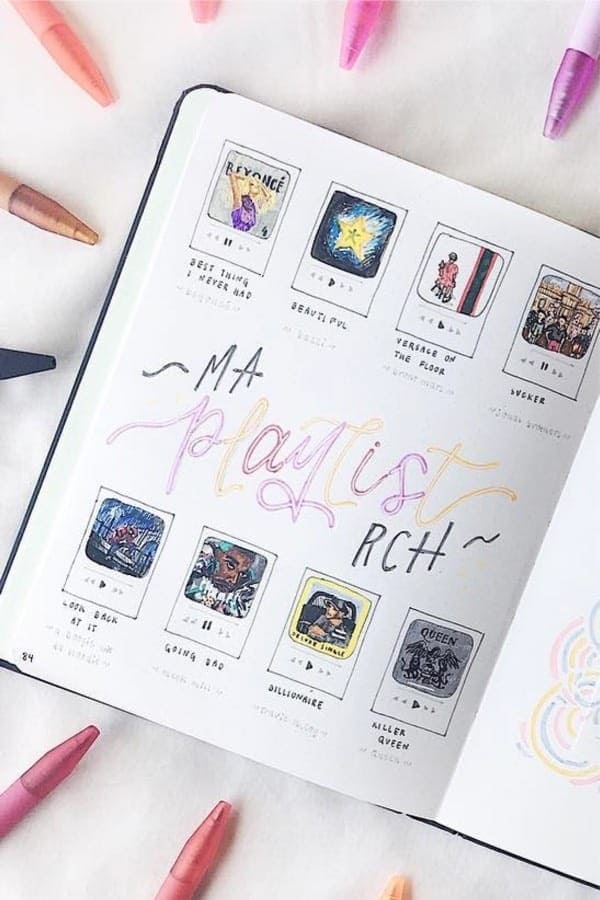 BEYONCÉ
4
BEST THING
I NEVER HAD
BEYONCÉ
BEAUTIFUL
BAZZI
VERSACE ON
THE FLOOR
BRUNO MARS
SUCKER
JONAS BROTHERS
~MA
playlist
RCH~
LOOK BACK
AT IT
A BOOGIE WIT
DA HOODIE
GOING BAD
MEEK MILL
DELUXE SINGLE
BILLIONAIRE
TRAVIE MCCOY
QUEEN
KILLER
QUEEN
QUEEN
84